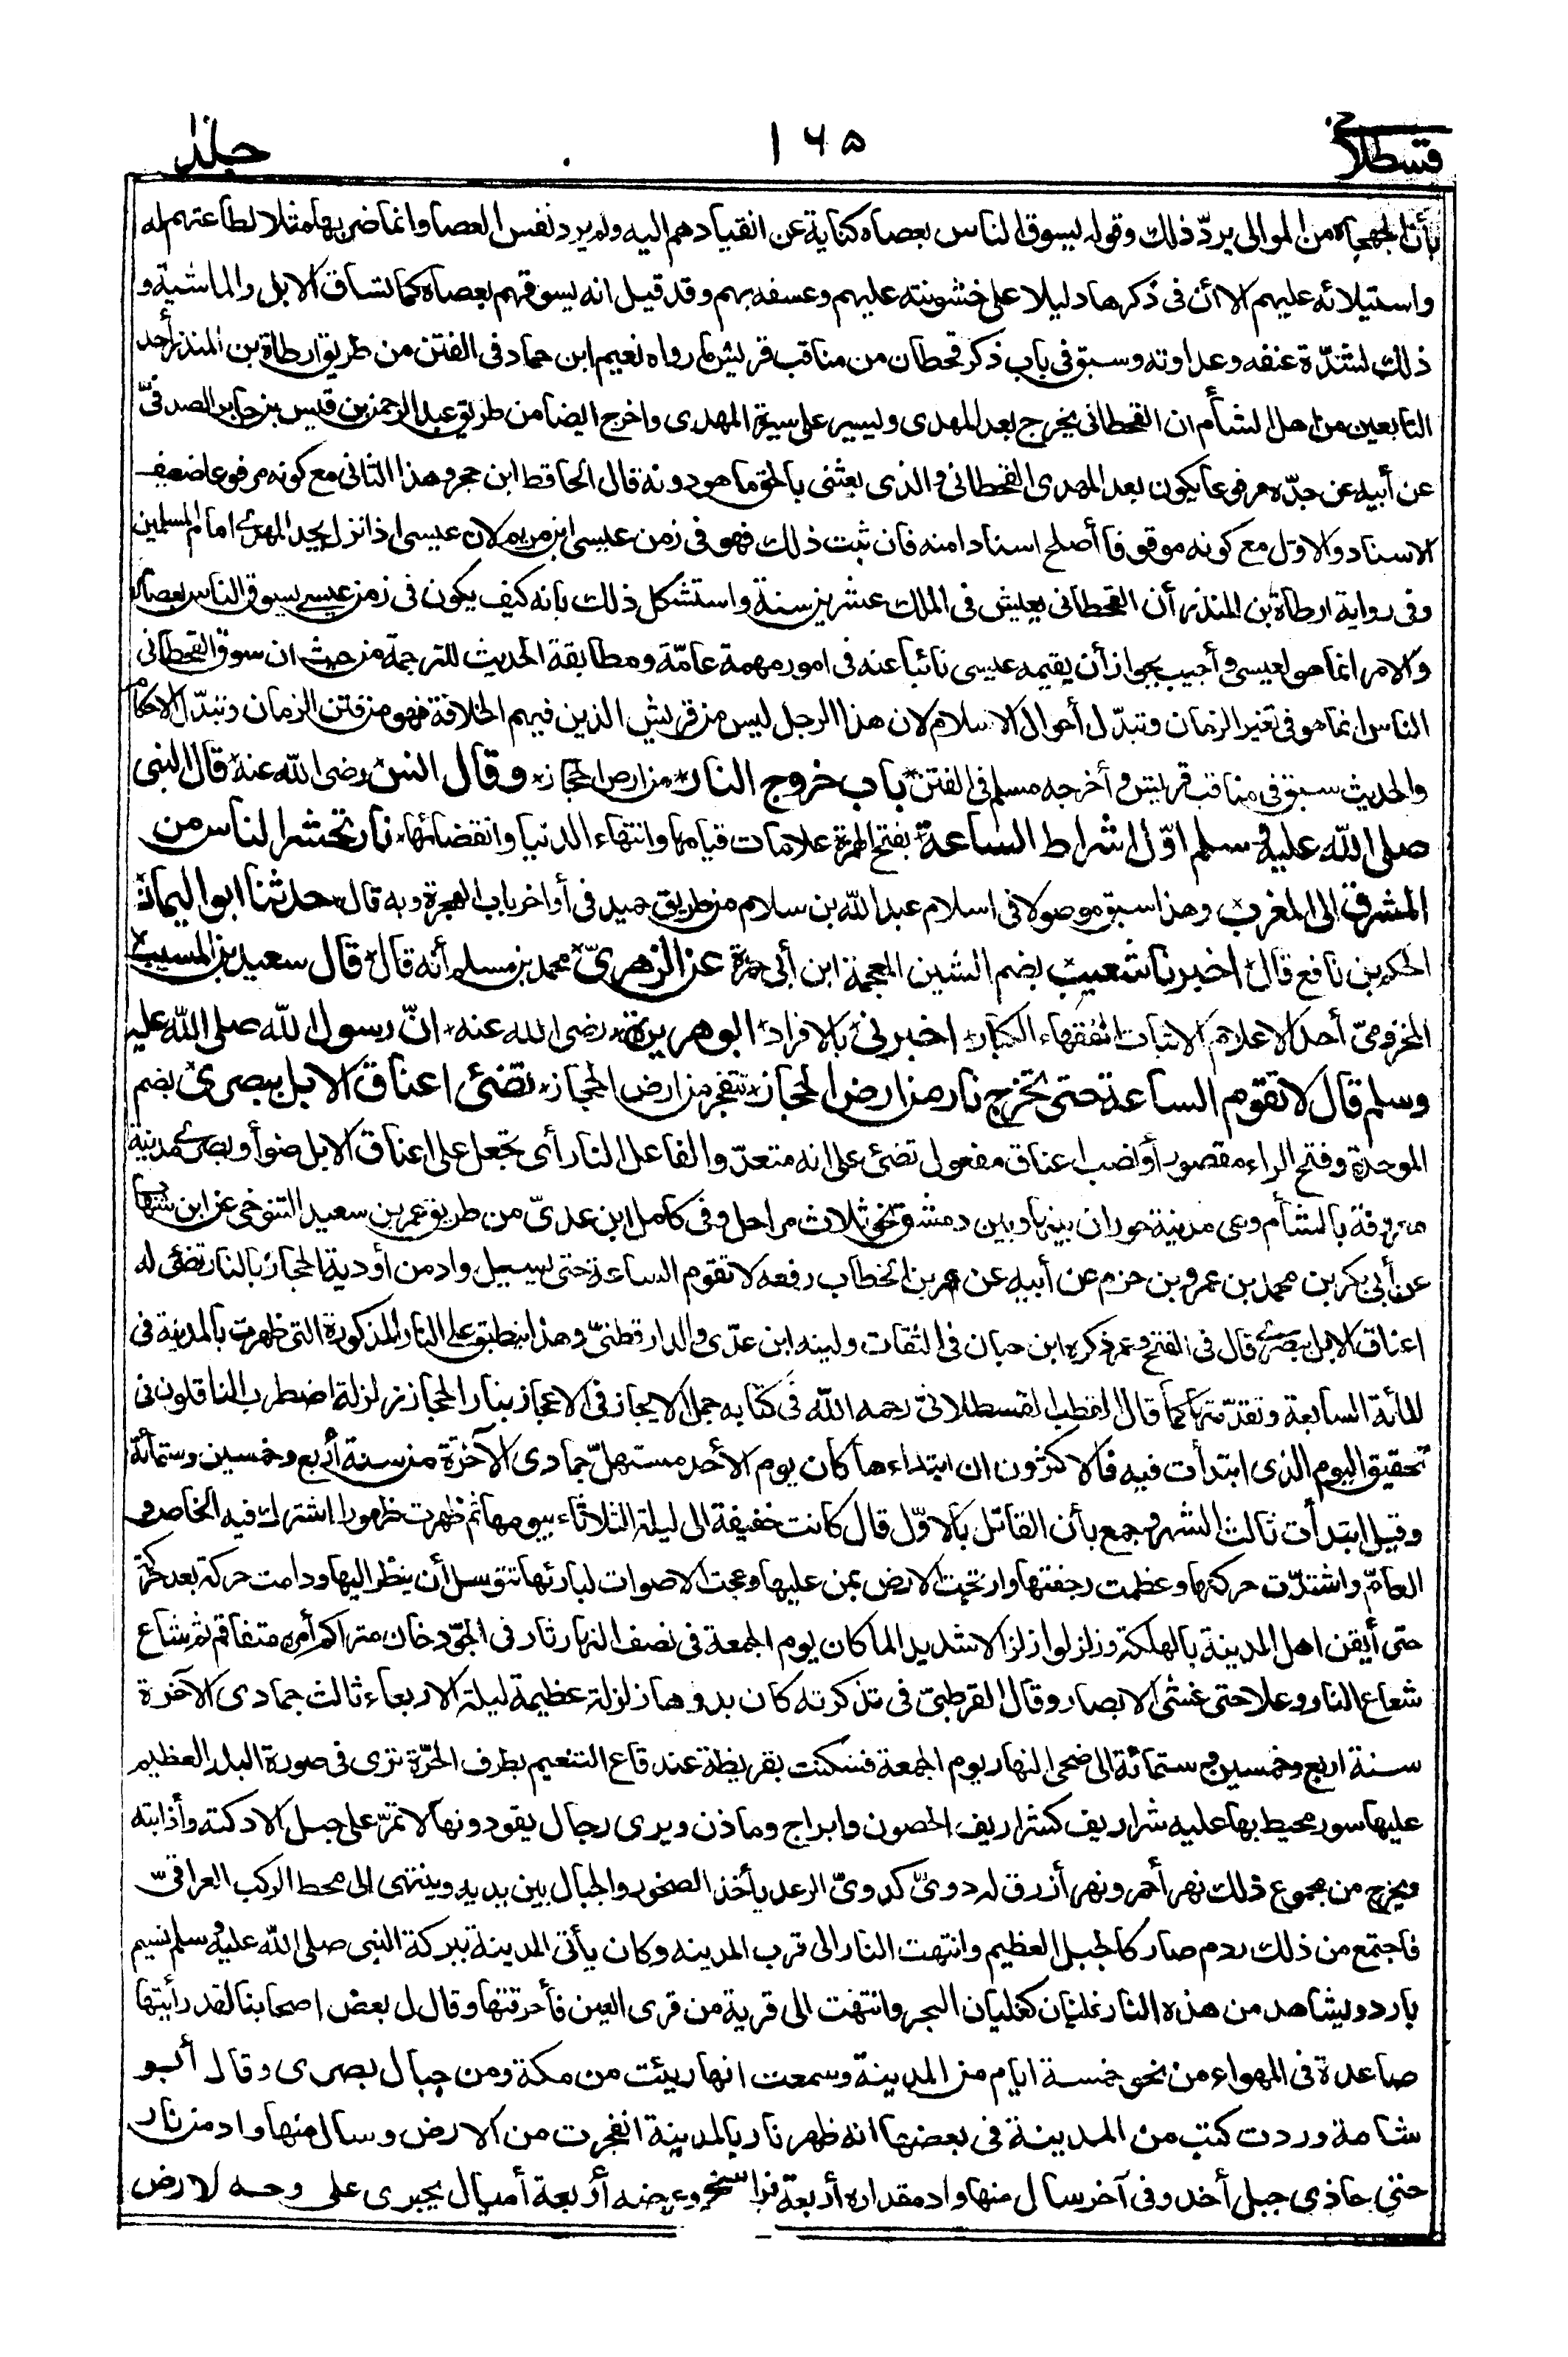 قسطلانی ۱۶۵ جلد۱۰
بأن الجهجاه من الموالی یردّ ذلك وقوله یسوق الناس بعصاه کنایة عن انقیادهم الیه ولم یرد نفس العصا وانما ضرب بها مثلا لطاعتهم له
واستیلائه علیهم الا أن فی ذکرها دلیلا علی خشونته علیهم وعسفه بهم وقد قیل انه یسوقهم بعصاه کما تساق الابل والماشیة و
ذلك لشدّة عنفه وعداوته وسبق فی باب ذکر قحطان من مناقب قریش ما رواه نعیم ابن حماد فی الفتن من طریق ارطاة بن المنذر أحد
التابعین من اهل الشأم ان القحطانی یخرج بعد المهدی ویسیر علی سیرة المهدی واخرج ایضا من طریق عبد الرحمن بن قیس بن جابر الصدفیّ
عن أبیه عن جدّه مرفوعا یکون بعد المهدی القحطانی والذی بعثنی بالحق ما هو دونه قال الحافظ ابن حجر وهذا الثانی مع کونه مرفوعا ضعیف
الاسناد والاوّل مع کونه موقوفا أصلح اسنادا منه فان ثبت ذلك فهو فی زمن عیسی ابن مریم لان عیسی اذا نزل یجد المهدی امام المسلمین
وفی روایة ارطاة بن المنذر أن القحطانی یعیش فی الملك عشرین سنة واستشکل ذلك بانه کیف یکون فی زمن عیسی یسوق الناس بعصاه
والامر انما هو لعیسی وأجیب بجواز أن یقیمه عیسی نائبا عنه فی امور مهمة عامّة ومطابقة الحدیث للترجمة من حیث ان سوق القحطانی
الناس انما هو فی تغیر الزمان وتبدّل أحوال الاسلام لان هذا الرجل لیس من قریش الذین فیهم الخلافة فهو من فتن الزمان وتبدّل الاحکام
والحدیث سبق فی مناقب قریش وأخرجه مسلم فی الفتن باب خروج النار من ارض الحجاز وقال انس رضی الله عنه قال النبی
صلی الله علیه وسلم اوّل اشراط الساعة بفتح الهمزة علامات قیامها وانتهاء الدنیا وانقضائها نار تحشر الناس من
المشرق الی المغرب وهذا سبق موصولا فی اسلام عبد الله بن سلام من طریق حمید فی أواخر باب الهجرة وبه قال حدثنا ابو الیمان
الحکم بن نافع قال اخبرنا شعیب بضم الشین المعجمة ابن أبی حمزة عن الزهریّ محمد بن مسلم أنه قال قال سعید بن المسیب
المخزومیّ أحد الاعلام الاثبات الفقهاء الکبار اخبرنی بالافراد ابو هریرة رضی الله عنه انّ رسول الله صلی الله علیه
وسلم قال لا تقوم الساعة حتی تخرج نار من ارض الحجاز تتفجر من ارض الحجاز تضئ اعناق الابل ببصری بضم
الموحدة وفتح الراء مقصورا ونصب اعناق مفعول تضئ علی انه متعدّ والفاعل النار أی تجعل علی اعناق الابل ضوأ وبصری مدینة
معروفة بالشأم وهی مدینة حوران بینها وبین دمشق نحو ثلاث مراحل وفی کامل ابن عدیّ من طریق عمر بن سعید التنوخی عن ابن شهاب
عن أبی بکر بن محمد بن عمرو بن حزم عن أبیه عن عمر بن الخطاب رفعه لا تقوم الساعة حتی یسیل واد من أودیة الحجاز بالنار تضئ له
اعناق الابل ببصری قال فی الفتح وعمر ذکره ابن حبان فی الثقات ولینه ابن عدّی والدارقطنیّ وهذا ینطبق علی النار المذکورة التی ظهرت بالمدینة فی
المأئة السابعة وتقدّمتها کما قال القطب القسطلانیّ رحمه الله فی کتابه جمل الایجاز فی الاعجاز بنار الحجاز زلزلة اضطرب الناقلون فی
تحقیق الیوم الذی ابتدأت فیه فالاکثرون ان ابتداءها کان یوم الأحد مستهلّ جمادی الآخرة من سنة أربع وخمسین وستمائة
وقیل ابتدأت ثالث الشهر وجمع بأن القائل بالاوّل قال کانت خفیفة الی لیلة الثلاثاء بیومها ثم ظهرت ظهورا اشترك فیه الخاص و
العامّ واشتدّت حرکتها وعظمت رجفتها وارتجت الارض بمن علیها وعجت الاصوات لبارئها تتوسل أن ینظر الیها ودامت حرکة بعد حرکة
حتی أیقن اهل المدینة بالهلکة وزلزلوا زلزالا شدیدا لما کان یوم الجمعة فی نصف النهار ثار فی الجوّ دخان متراکم أمره متفاقم ثم شاع
شعاع النار وعلا حتی غشی الابصار وقال القرطبیّ فی تذکرته کان بدوها زلزلة عظیمة لیلة الاربعاء ثالث جمادی الآخرة
سنة اربع وخمسین وستمائة الی ضحی النهار یوم الجمعة فسکنت بقریظة عند قاع التنعیم بطرف الحرّة تری فی صورة البلد العظیم
علیها سور محیط بها علیه شراریف کشراریف الحصون وابراج وماذن ویری رجال یقودونها لا تمرّ علی جبل الا دکته وأذابته
ویخرج من مجموع ذلك نهر أحمر ونهر أزرق له دویّ کدویّ الرعد یأخذ الصخور والجبال بین یدیه وینتهی الی محط الرکب العراقیّ
فاجتمع من ذلك ردم صار کالجبل العظیم وانتهت النار الی قرب المدینه وکان یأتی المدینة ببرکة النبی صلی الله علیه وسلم نسیم
بارد ویشاهد من هذه النار غلیان کغلیان البحر وانتهت الی قریة من قری الیمن فأحرقتها وقال ل بعض اصحابنا لقد رأیتها
صاعدة فی الهواء من نحو خمسة ایام من المدینة وسمعت انها ریئت من مکة ومن جبال بصری وقال أبو
شامة وردت کتب من المدینة فی بعضها انه ظهر نار بالمدینة انفجرت من الارض وسال منها واد من نار
حتی حاذی جبل أحد وفی آخر سال منها واد مقداره أربعة فراسخ وعرضه أربعة أمیال یجری علی وجه الارض